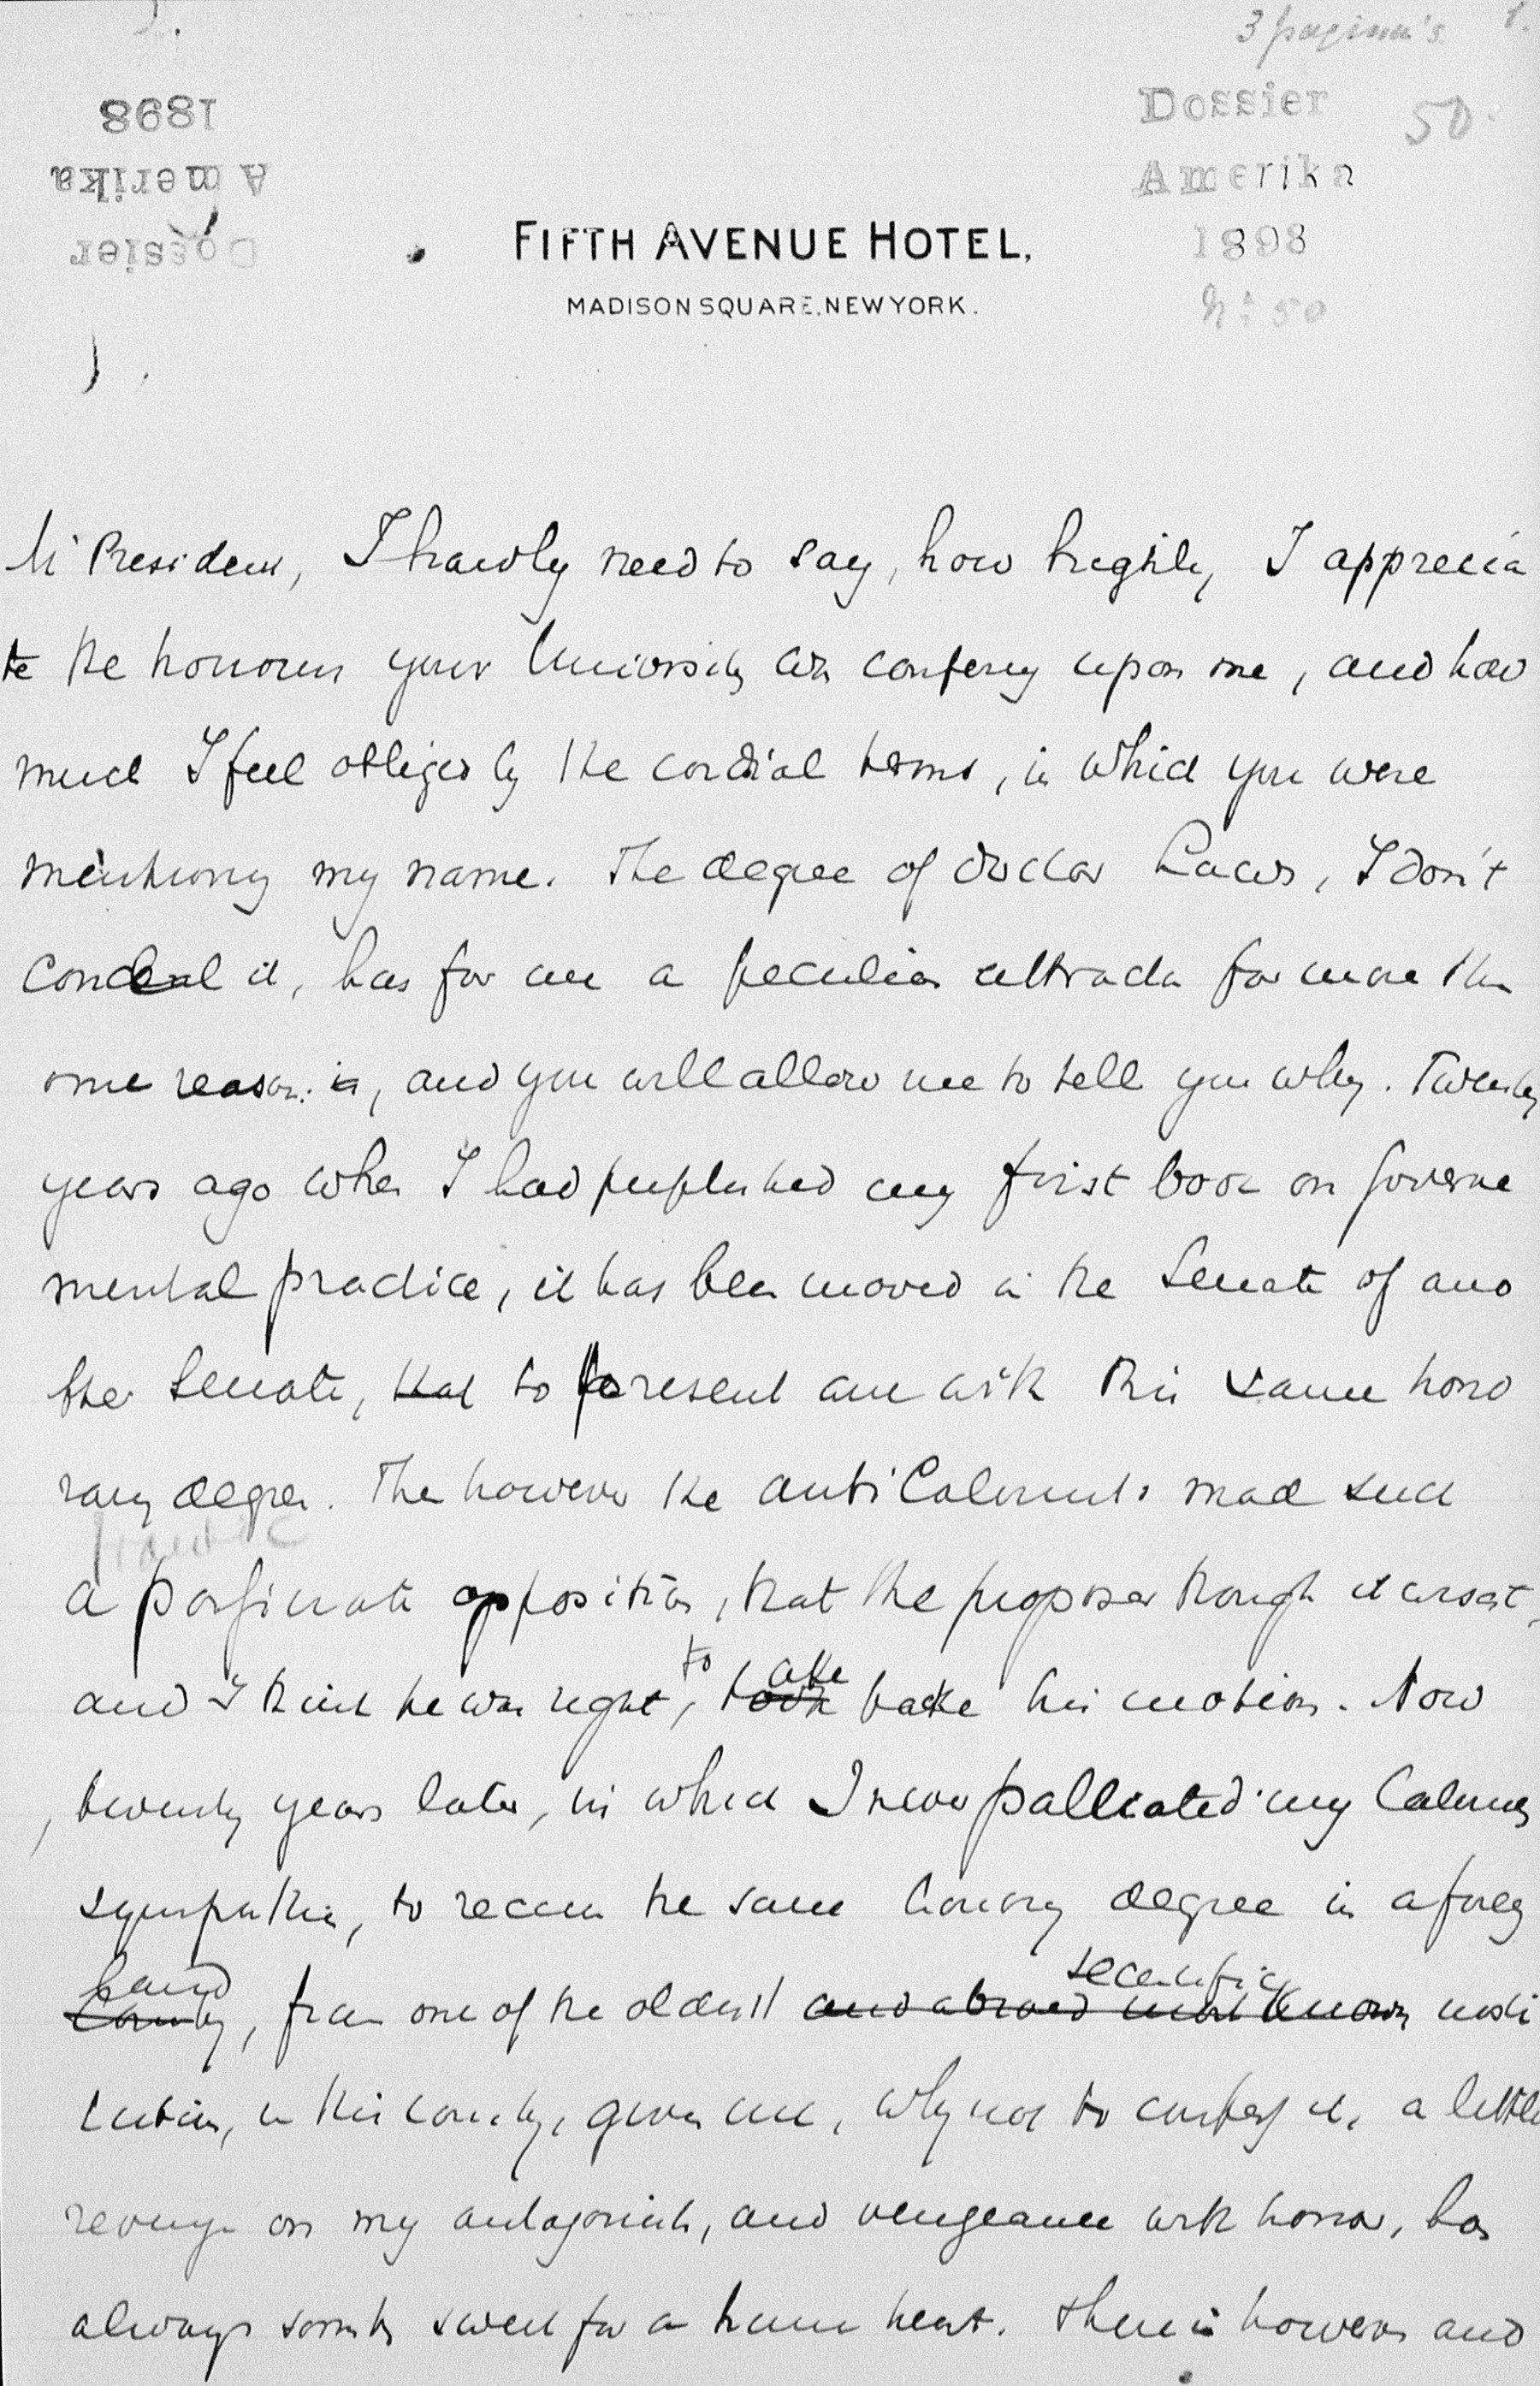 3 pagina's 1.
Dossier 50
Amerika
1898
n: 50
1898
Amerika
Dossier
FIFTH AVENUE HOTEL,
MADISON SQUARE, NEW YORK.
Mr President, I hardly need to say, how highly I apprecia
te the honour your University is confering upon me, and how
much I feel obliged by the cordial terms, in which you were
mentioning my name. The degree of doctor Laws, I don't
conceal it, has for me a peculiar attraction for more than
one reason, and you will allow me to tell you why. Twenty
years ago when I had published my first book on Governe
mental practice, it has been moved in the Senate of ano
ther Senate, that to present me with this same hono
rary degree. The however the anti Calvinists made such
a passionate opposition, that the proposer though it wisest,
and I think he was right, to take back his motion. Now
, twenty years later, in which I never palliated my Calvinistic
sympathie, to receive the same honorary degree in a foreign
land
Country, from one of the oldest and abroad most known scientific insti
tution, in this country, gives me, why not to confess it, a little
revenge on my antagonists, and vengeance with honor, has
always something sweet for a human heart. There is however and